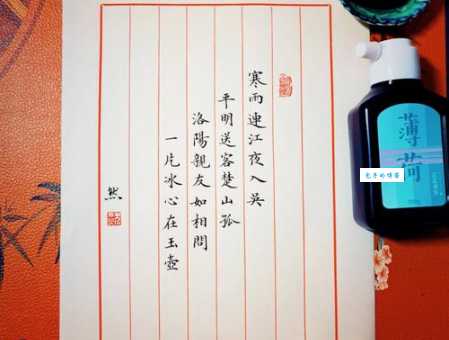 寒雨連江夜入吳
平明送客楚山孤
洛陽親友如相問
一片冰心在玉壺
然
薄荷